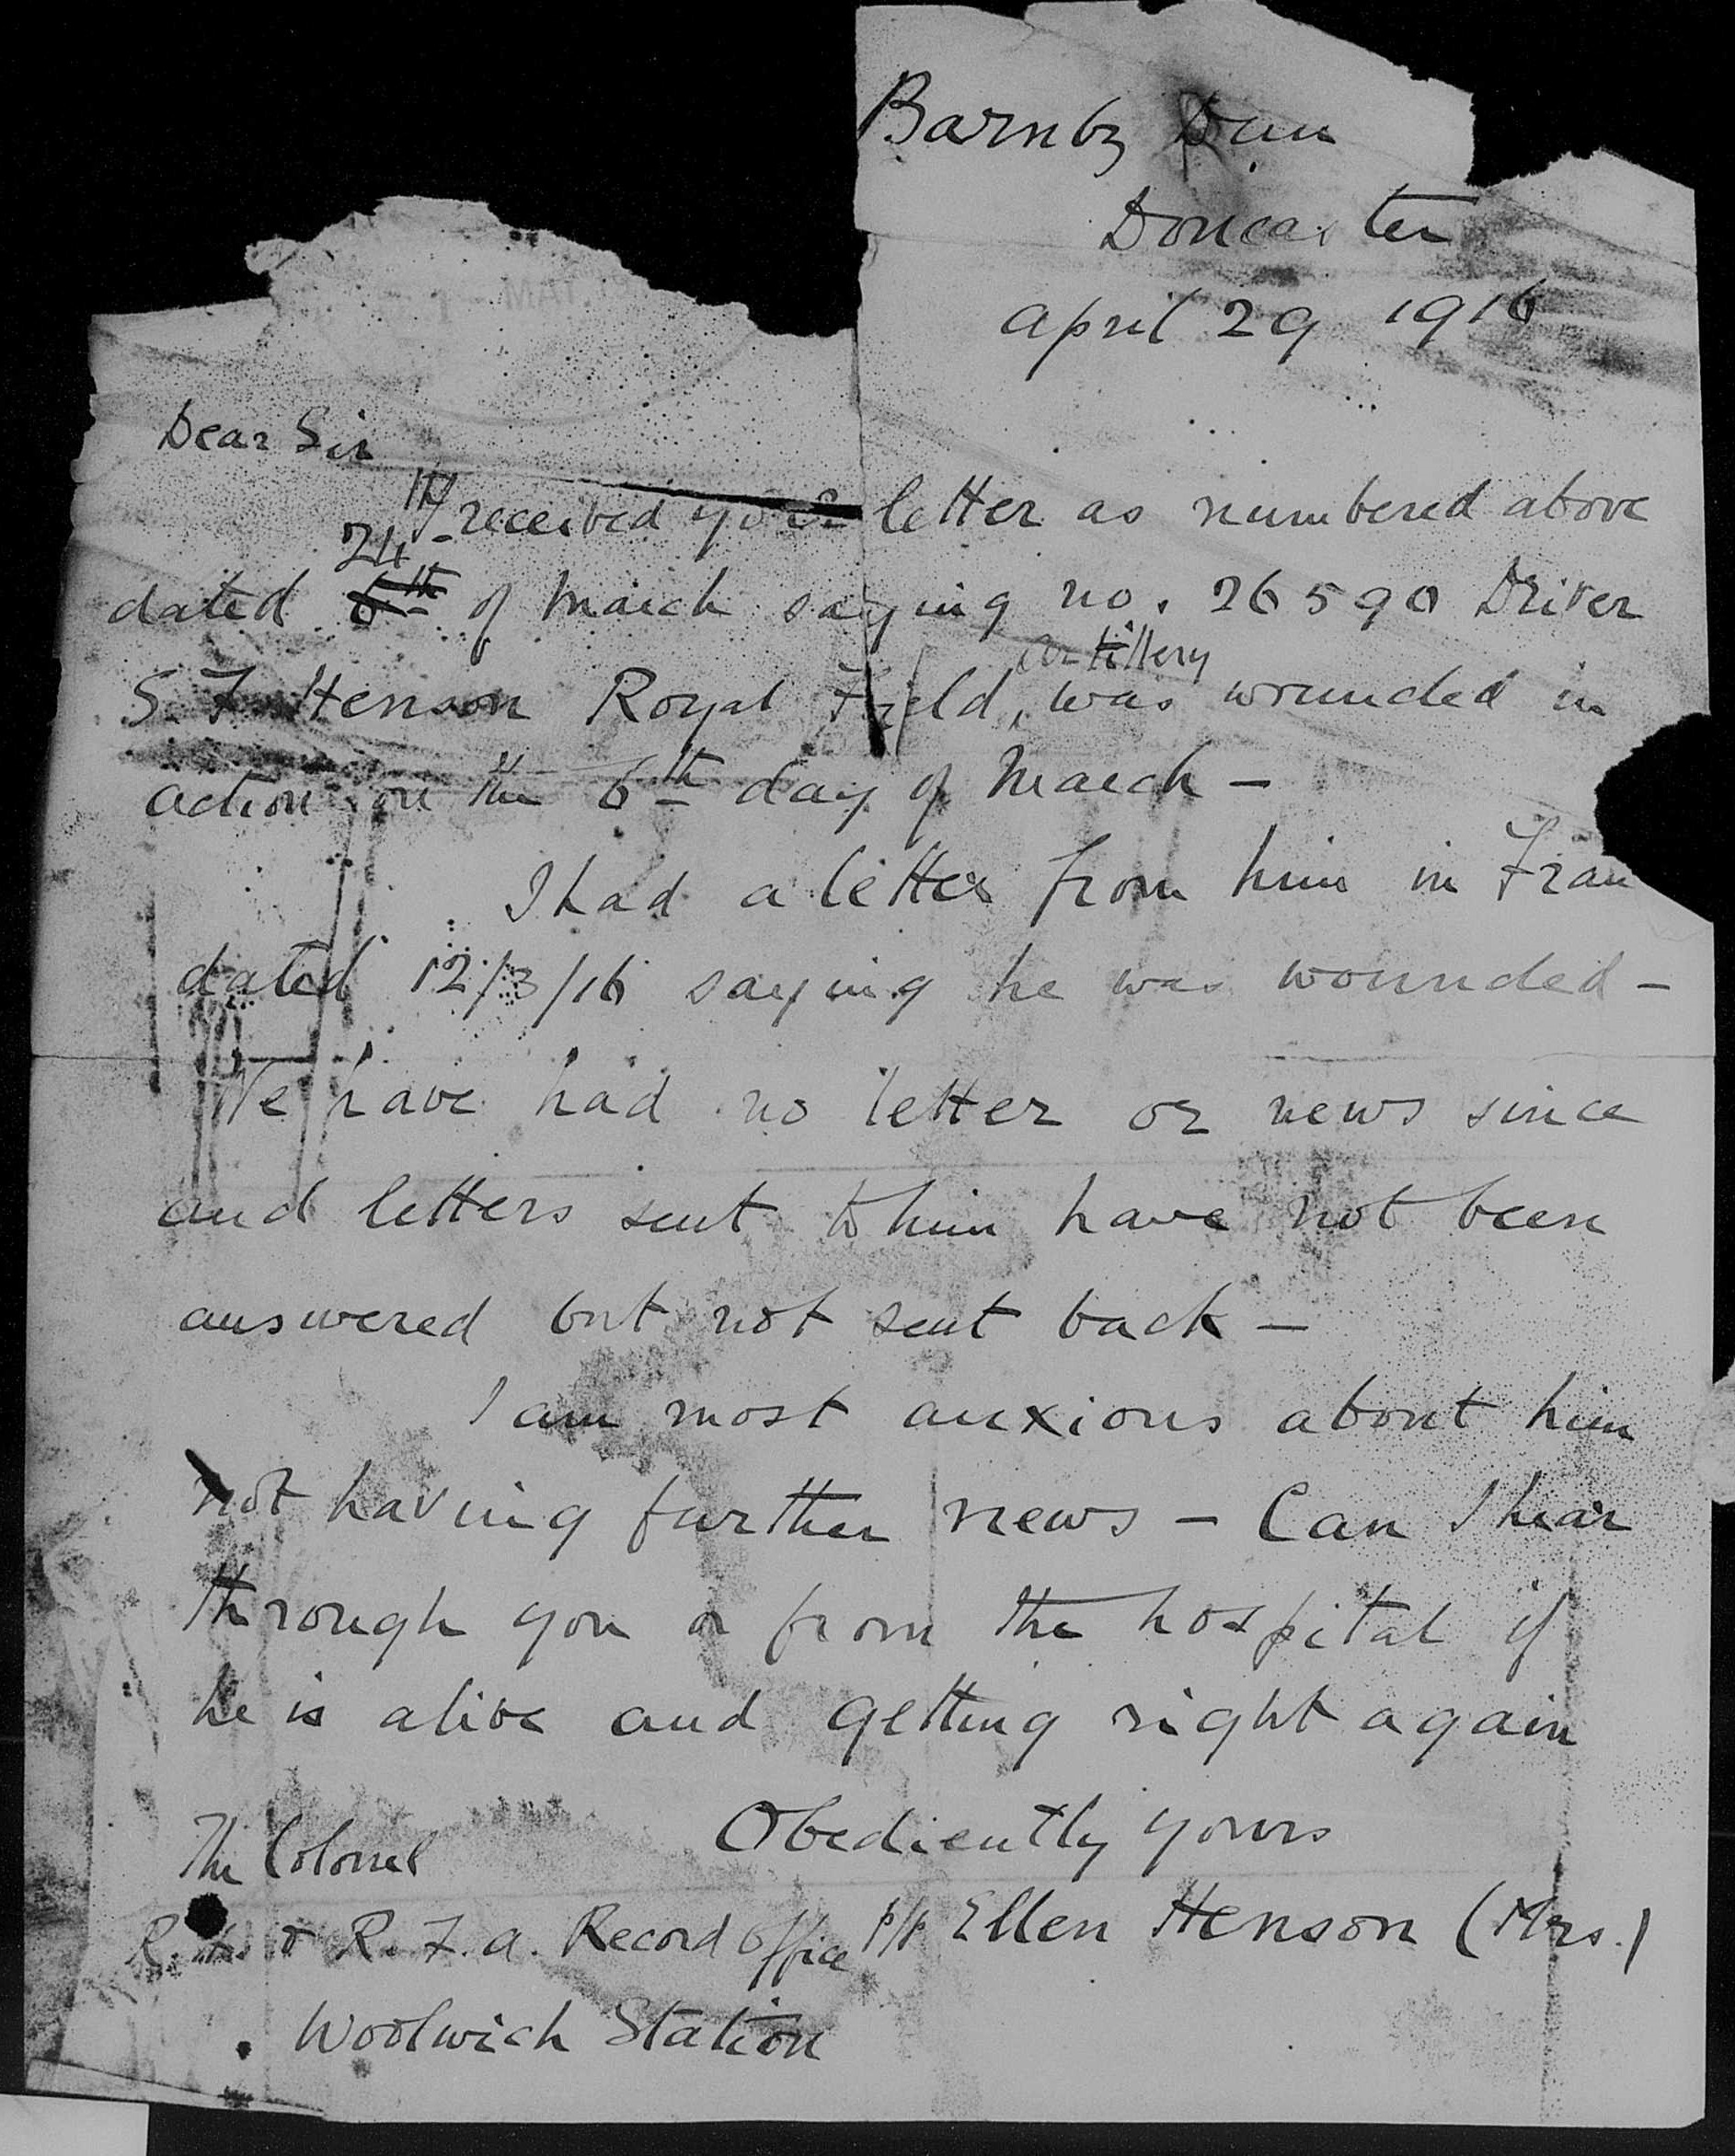 Barnby Dun
Doncaster
April 29 1916
MAY
Dear Sir
I received your letter as numbered above
24th
dated 6th of March saying no. 26590 Driver
artillery
S. F. Henson Royal Field, was wounded in
action on the 6th day of March -
I had a letter from him in Fran
dated 12/3/16 saying he was wounded -
We have had no letter or news since
and letters sent to him have not been
answered but not sent back -
I am most anxious about him
not having further news - Can I hear
through you or from the hospital if
he is alive and getting right again
Obediently yours
The Colonel
R. H. & R. F. A. Record Office p/p Ellen Henson (Mrs.)
Woolwich Station